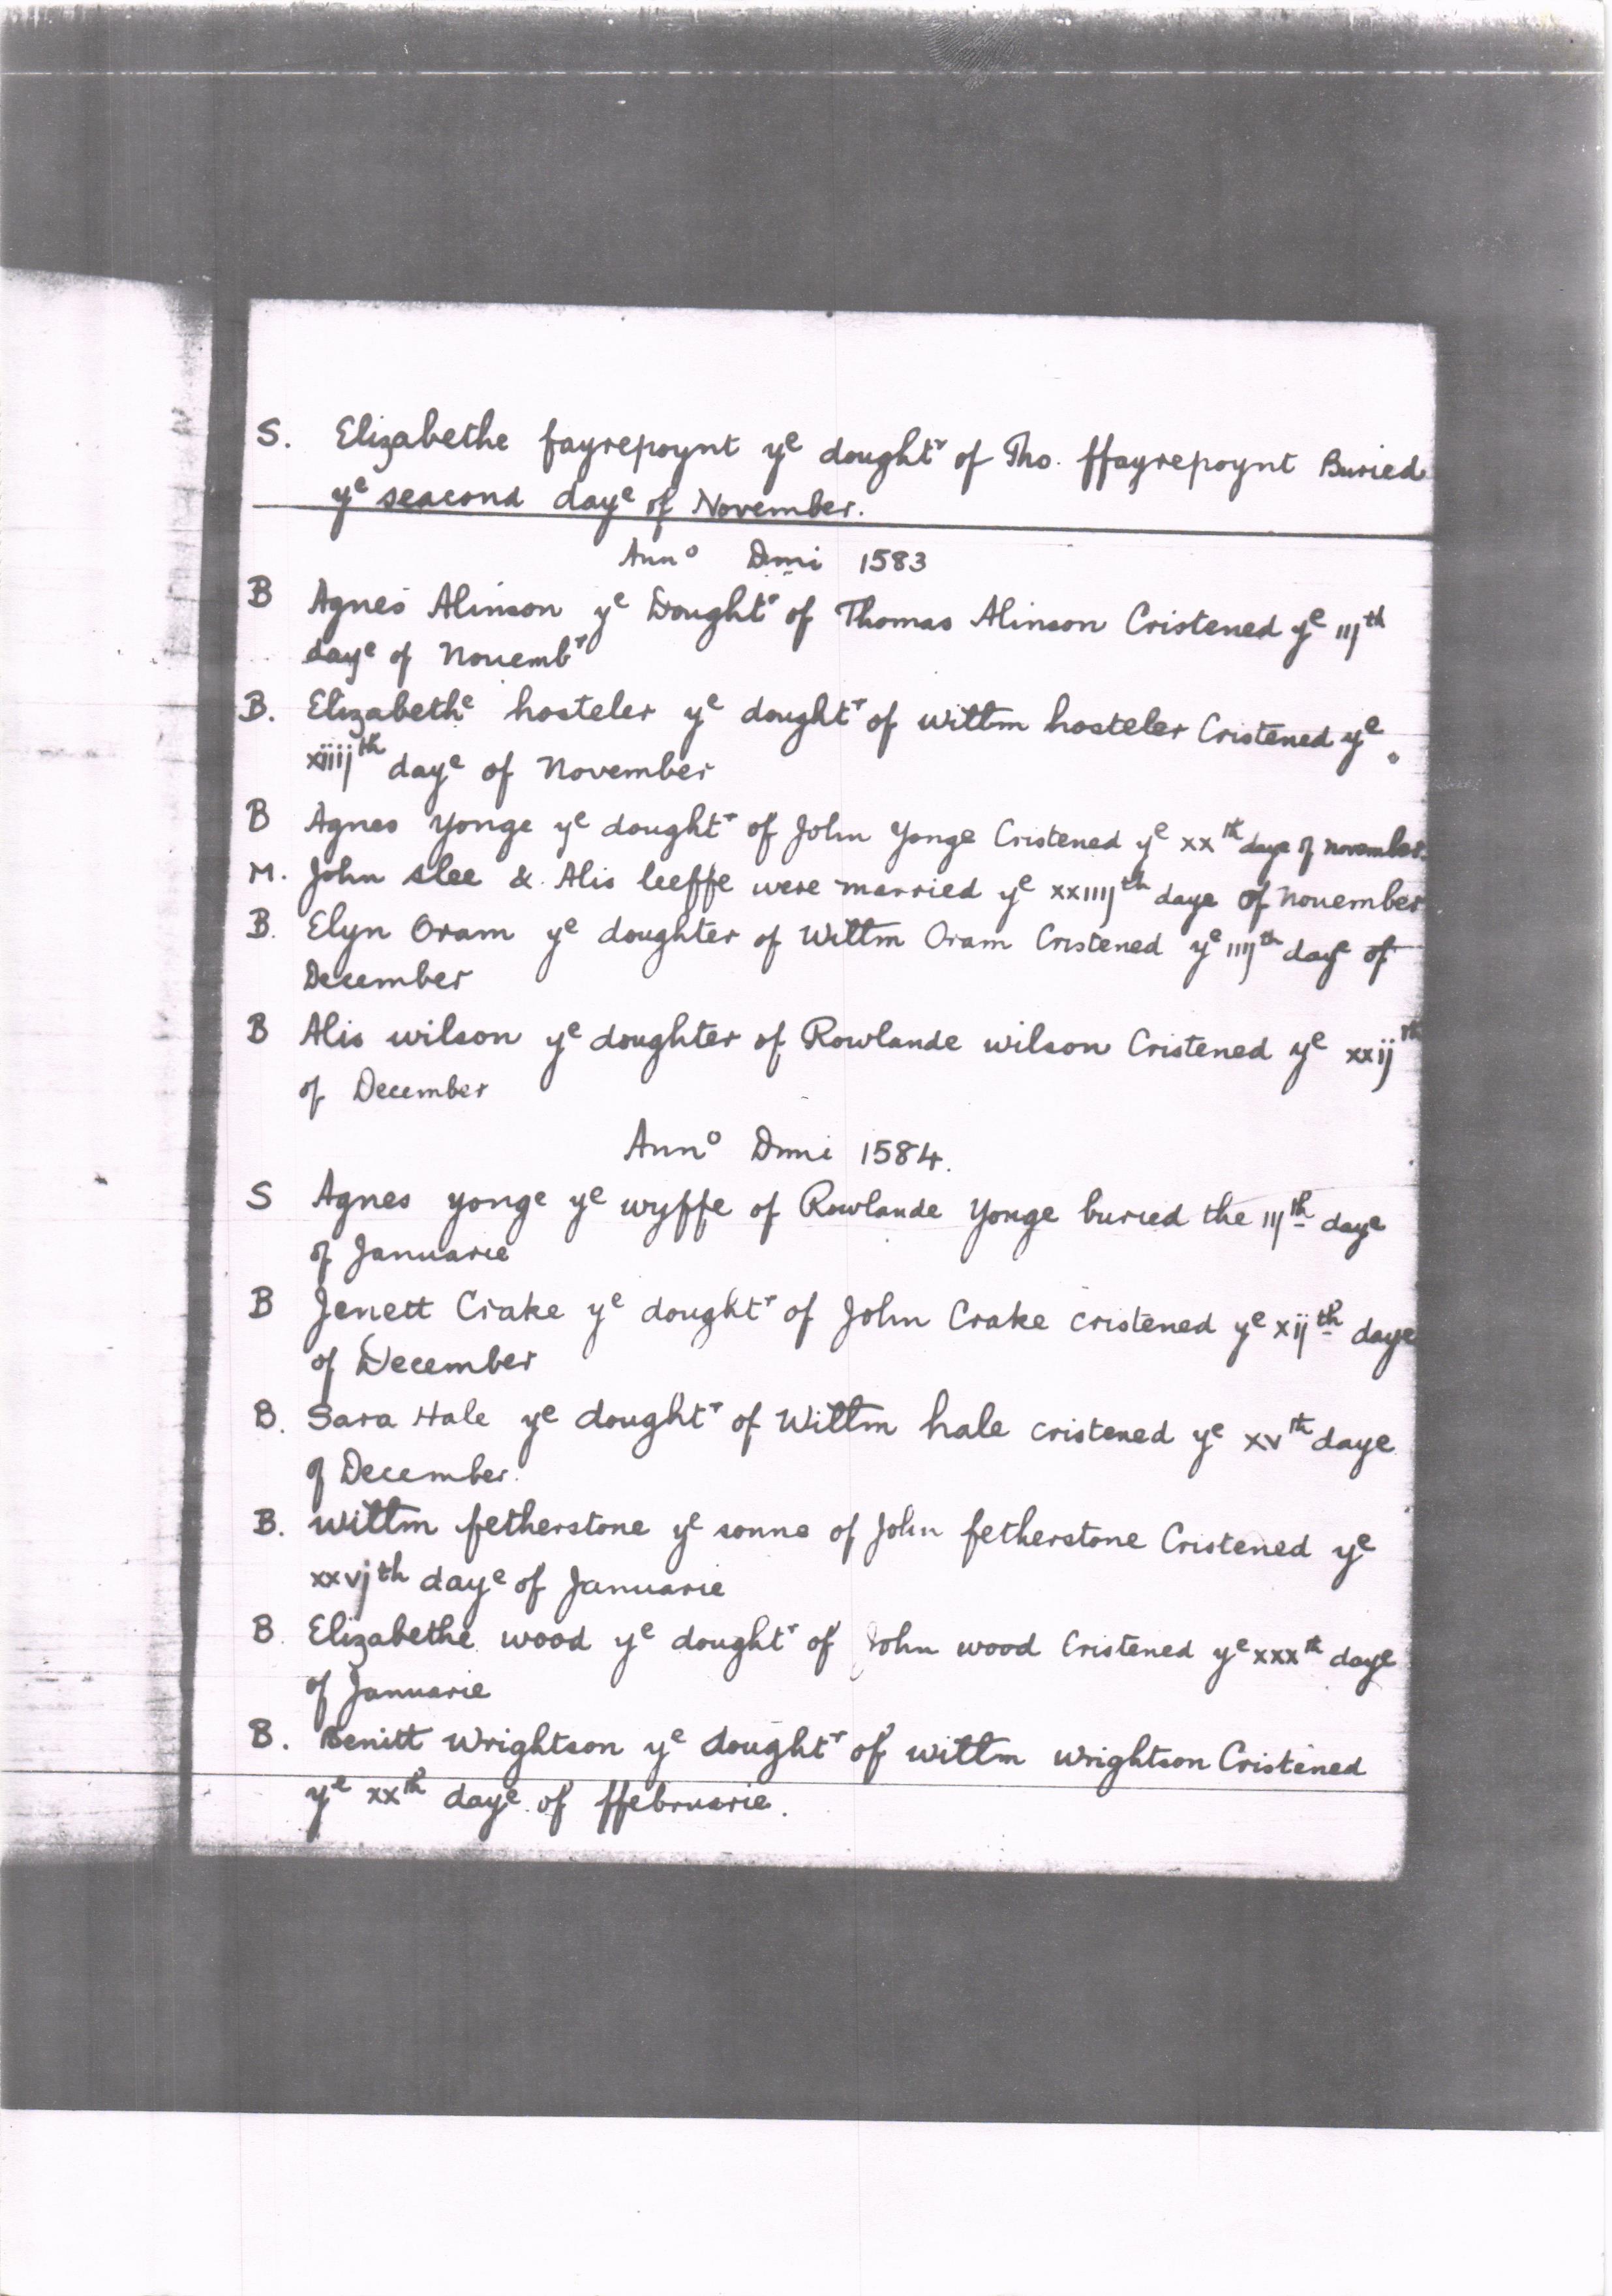 S. Elizabethe fayrepoynt yᵉ doughtʳ of Tho. ffayrepoynt Buried
yᵉ seacond dayᵉ of November.
Annº Dmi 1583
B Agnes Alinson yᵉ Doughtʳ of Thomas Alinson Cristened yᵉ iijᵗʰ
dayᵉ of Nouembʳ
B. Elizabethᵉ hosteler yᵉ doughtʳ of Willm hosteler Cristened yᵉ
xiiijᵗʰ dayᵉ of November
B Agnes Yonge yᵉ doughtʳ of John Yonge Cristened yᵉ xxᵗʰ daye of november
M. John Slee & Alis leeffe were married yᵉ xxiiijᵗʰ daye of Nouember
B. Elyn Oram yᵉ doughter of Willm Oram Cristened yᵉ iiijᵗʰ dayᵉ of
December
B Alis wilson yᵉ doughter of Rowlande wilson Cristened yᵉ xxijᵗʰ
of December
Annº Dmi 1584.
S Agnes yonge yᵉ wyffe of Rowlande Yonge buried the iijᵗʰ daye
of Januarie
B Jenett Crake yᵉ doughtʳ of John Crake cristened yᵉ xijᵗʰ daye
of December
B. Sara Hale yᵉ doughtʳ of Willm hale cristened yᵉ xvᵗʰ daye
of December.
B. Willm fetherstone yᵉ sonne of John fetherstone Cristened yᵉ
xxvjᵗʰ dayᵉ of Januarie
B. Elizabethe wood yᵉ doughtʳ of John wood Cristened yᵉ xxxᵗʰ daye
of Januarie
B. Benitt Wrightson yᵉ doughtʳ of willm wrightson Cristened
yᵉ xxᵗʰ dayᵉ of ffebruarie.